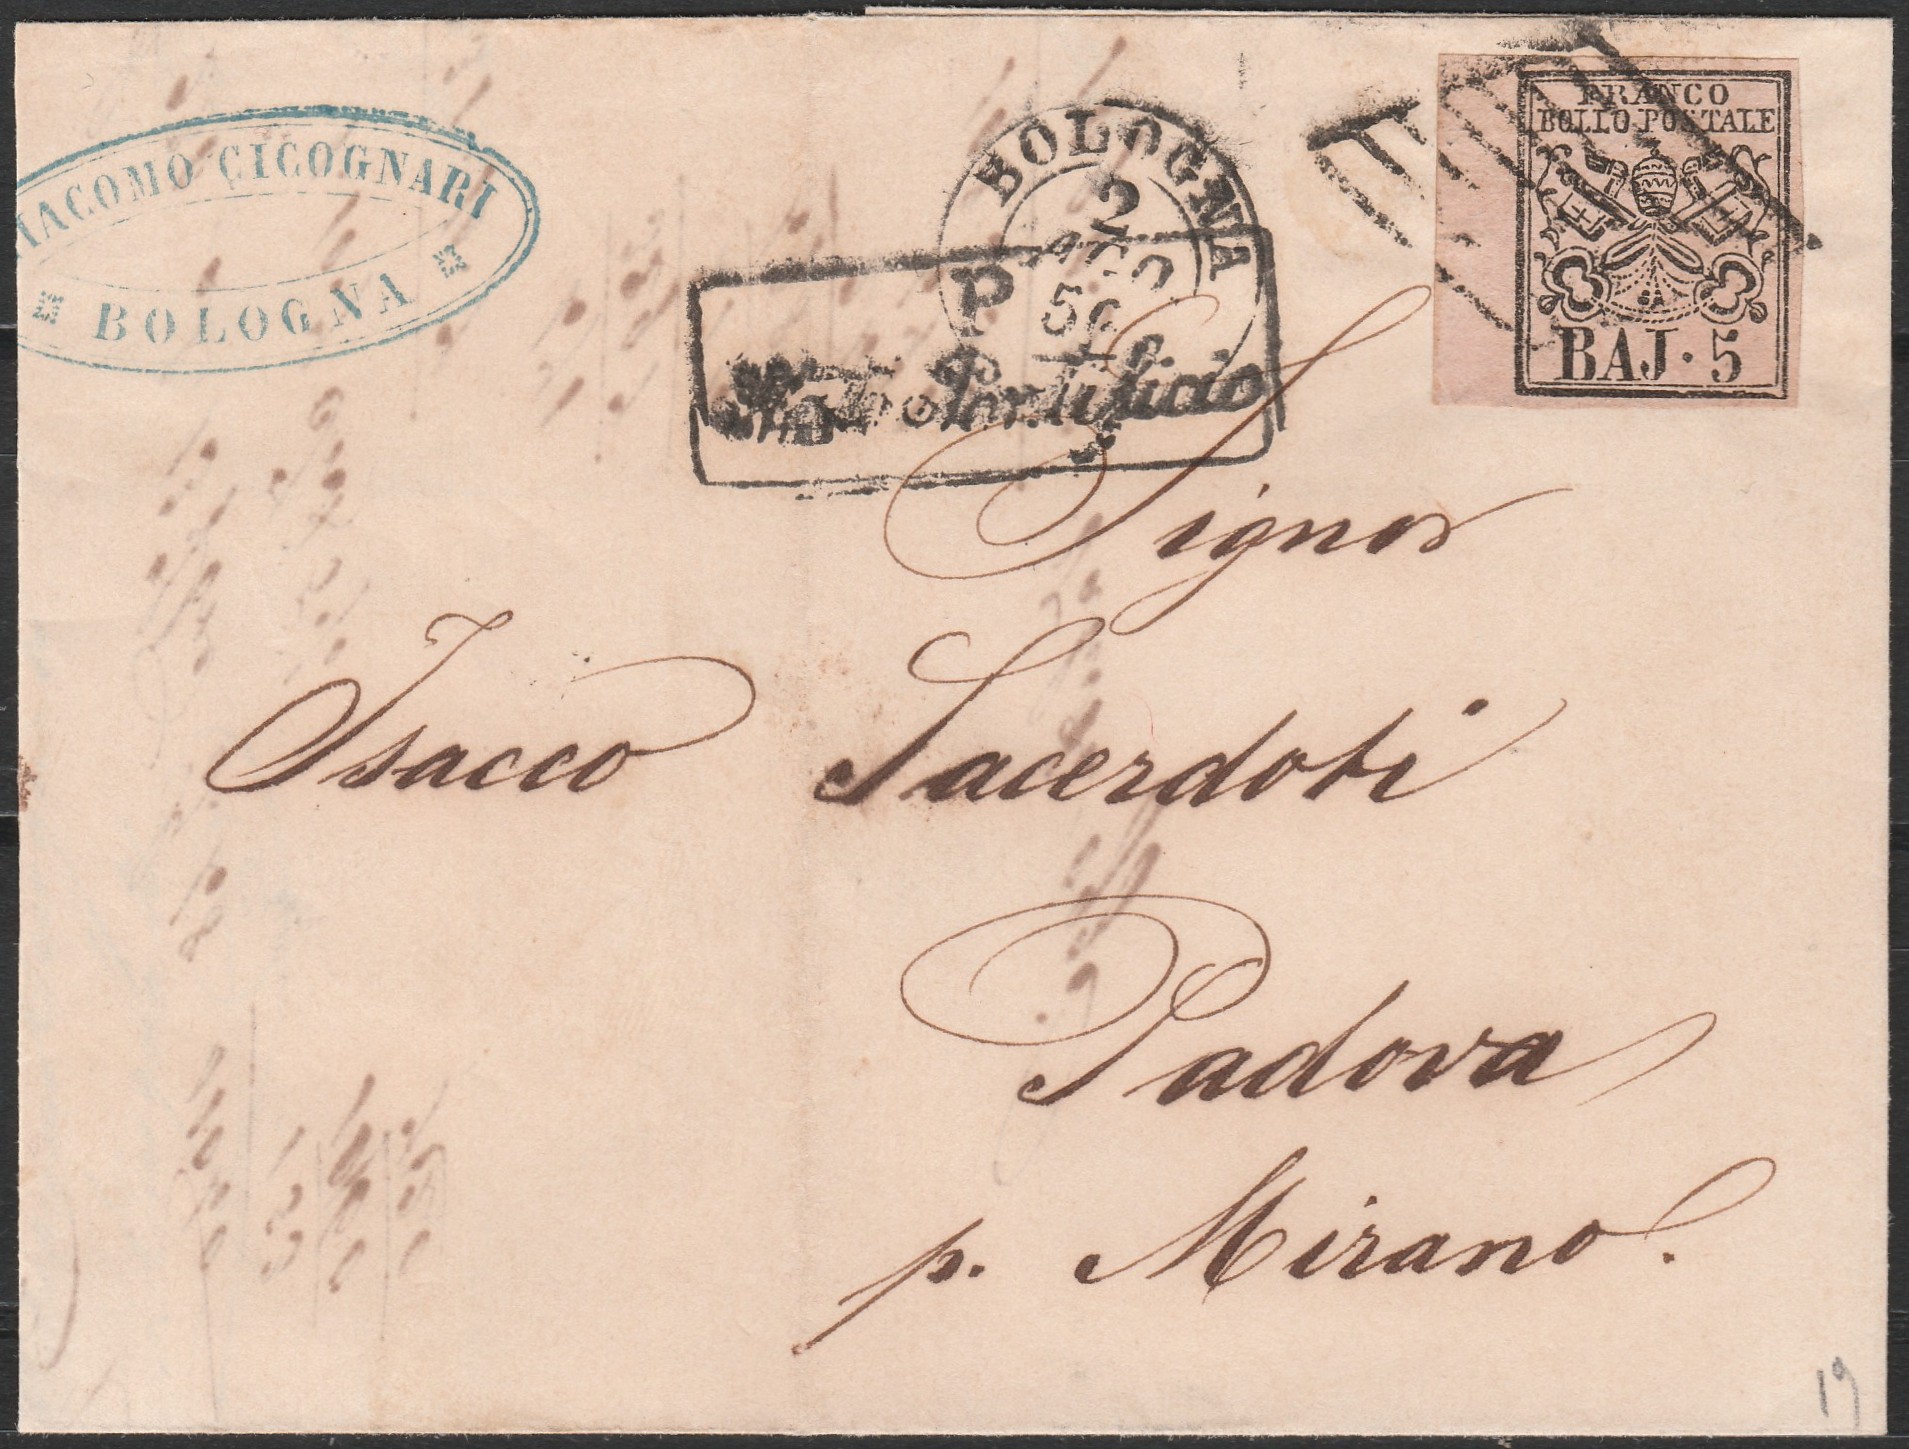 GIACOMO CICOGNARI
BOLOGNA
BOLOGNA
2
AGO
P
Stato Pontificio
FRANCO
BOLLO POSTALE
BAJ. 5
Signor
Isacco Sacerdoti
Padova
p. Mirano.
19